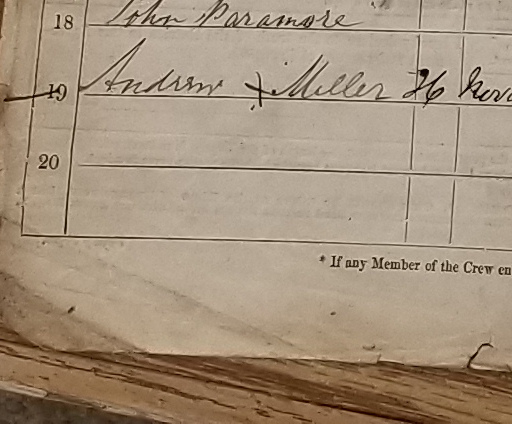 18 John Paramore
19 Andrew + Miller 26
20
* If any Member of the Crew en